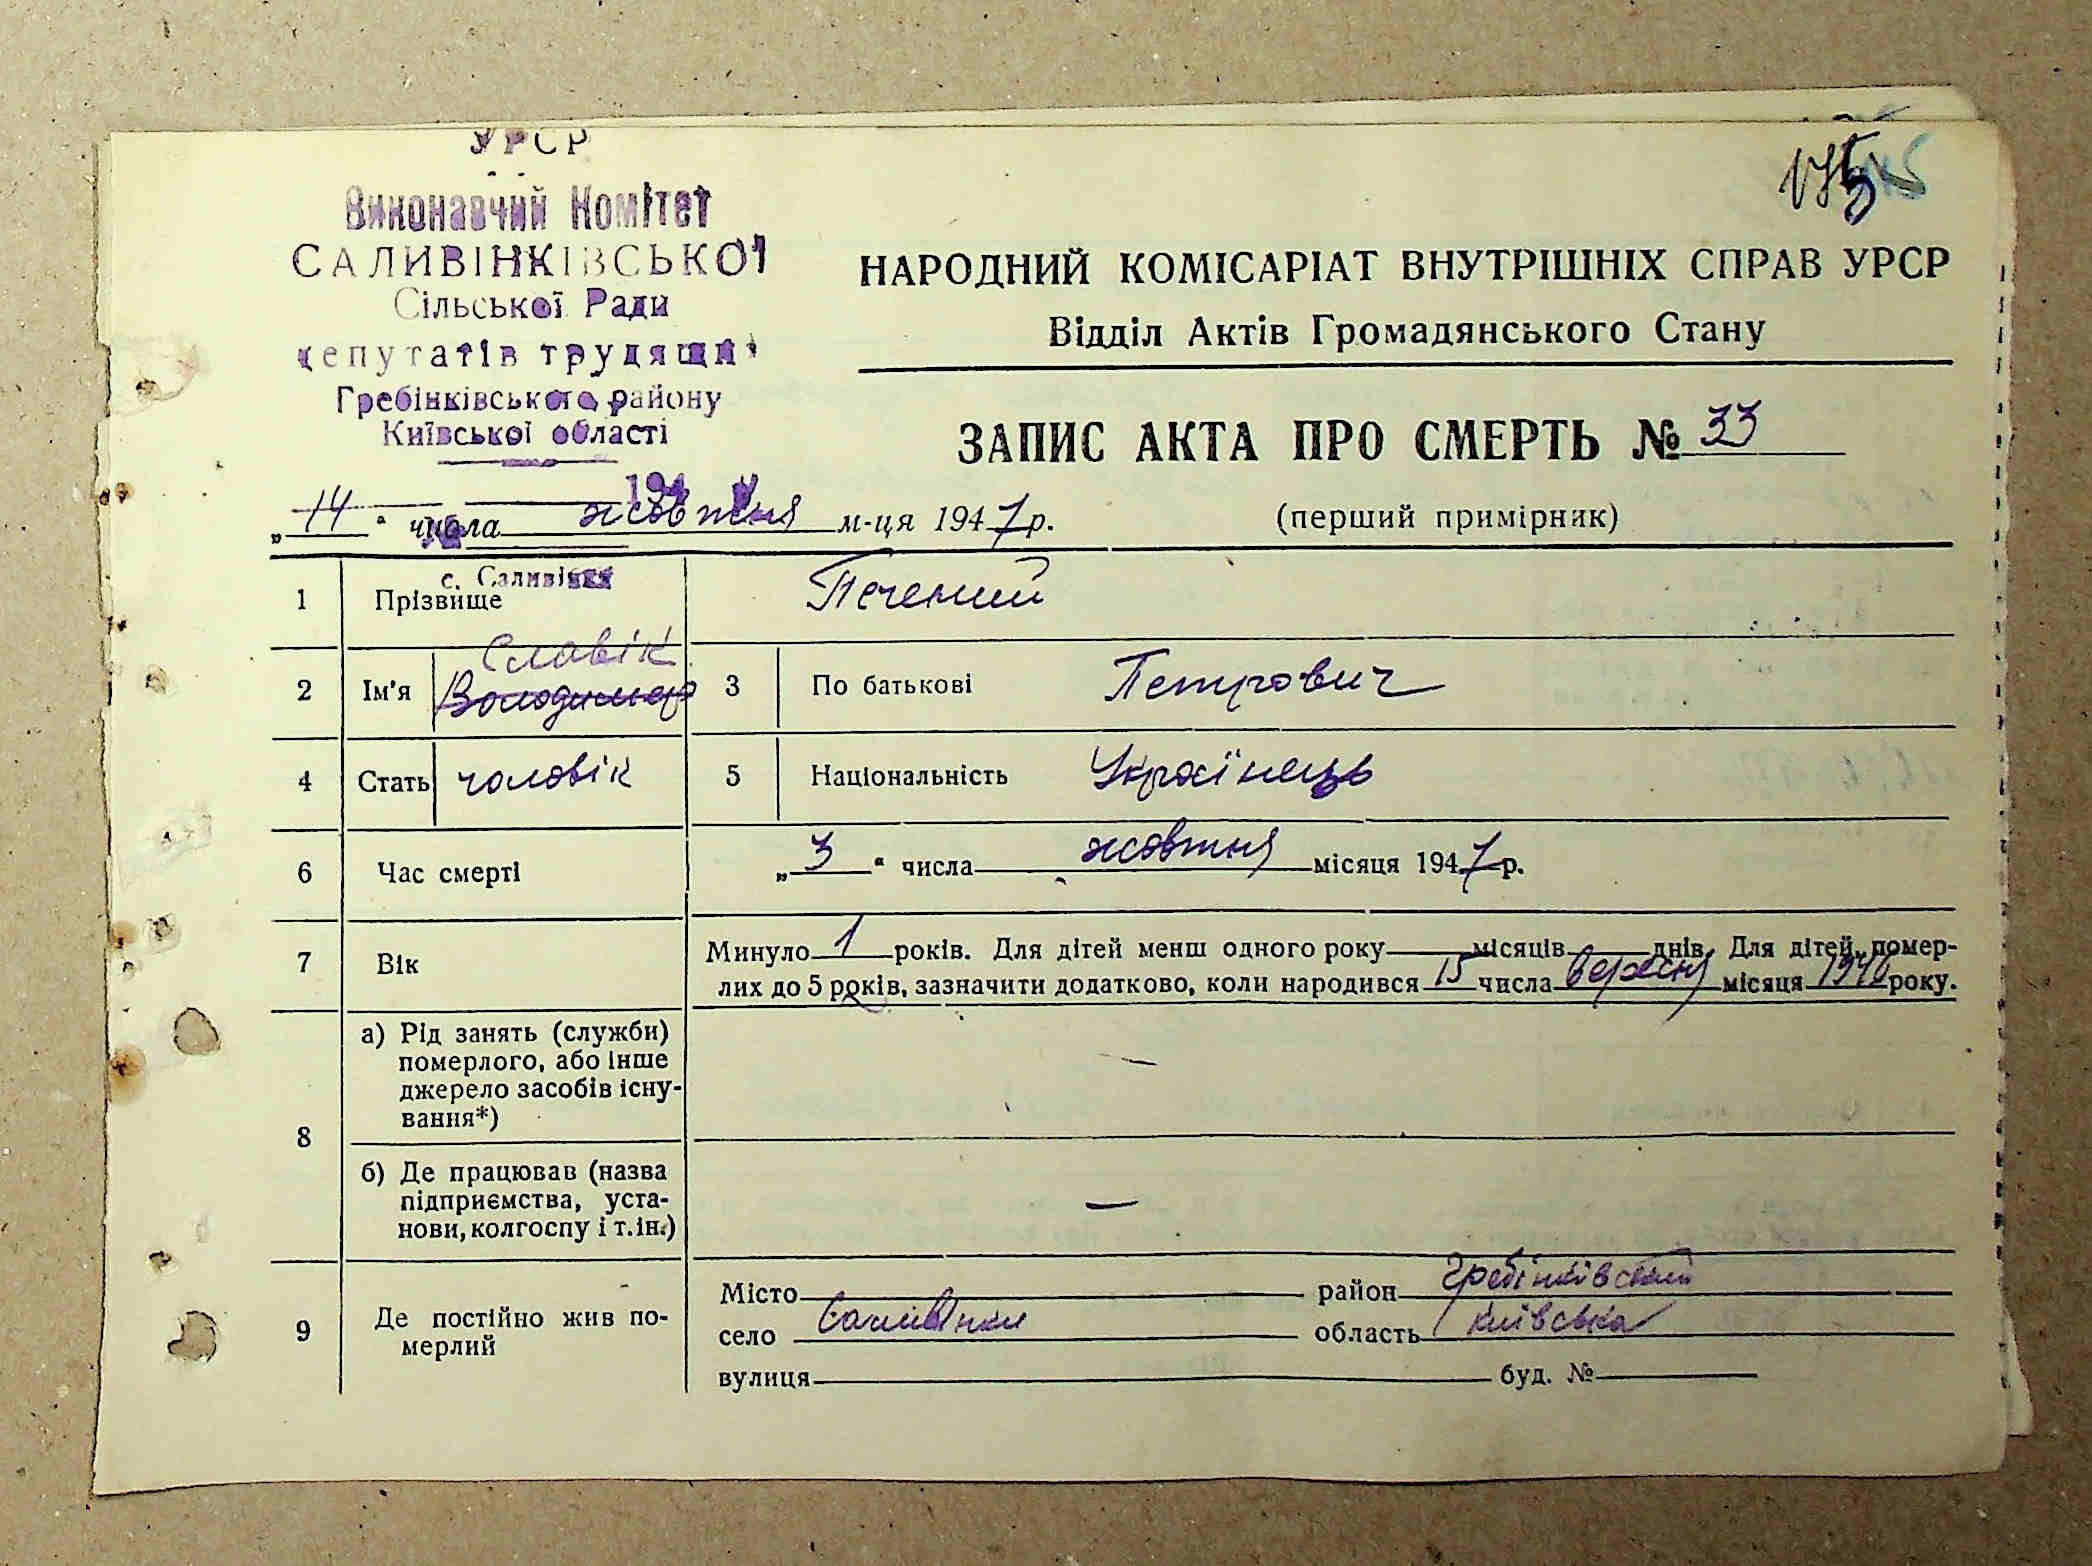 УРСР
Виконавчий Комітет
САЛИВІНКІВСЬКОЇ
Сільської Ради
депутатів трудящих
Гребінківського району
Київської області
194
НАРОДНИЙ КОМІСАРІАТ ВНУТРІШНІХ СПРАВ УРСР
Відділ Актів Громадянського Стану
ЗАПИС АКТА ПРО СМЕРТЬ № 33
„14“ числа жовтня м-ця 1947 р.
(перший примірник)
с. Саливінки
1 Прізвище Печений
Славік
2 Ім'я Володимер 3 По батькові Петрович
4 Стать чоловік 5 Національність Українець
6 Час смерті „3“ числа жовтня місяця 1947 р.
7 Вік Минуло 1 років. Для дітей менш одного року місяців днів. Для дітей, помер-
лих до 5 років, зазначити додатково, коли народився 15 числа вересня місяця 1946 року.
8 а) Рід занять (служби)
померлого, або інше
джерело засобів існу-
вання*) —
б) Де працював (назва
підприємства, уста-
нови, колгоспу і т. ін.) —
9 Де постійно жив по-
мерлий
Місто район Гребінківський
село Саливінки область Київська
вулиця буд. №